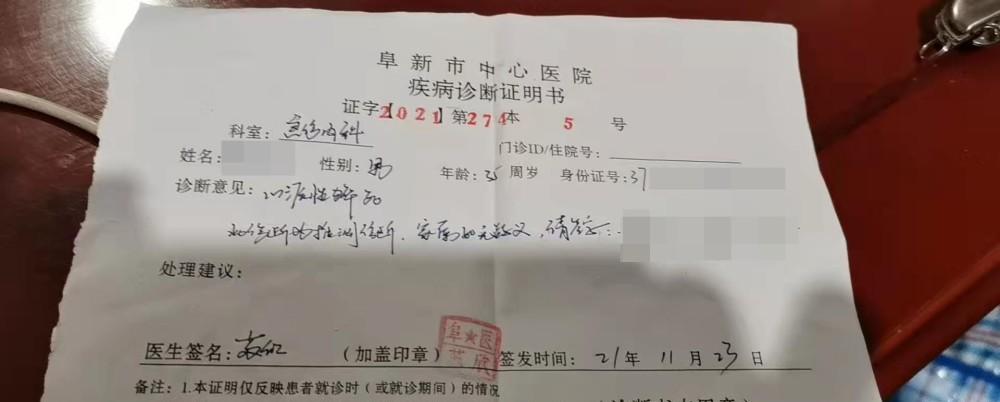 阜新市中心医院
疾病诊断证明书
证字【2021】第274本 5 号
科室：急诊内科 门诊ID/住院号：
姓名： 性别：男 年龄：35 周岁 身份证号：37
诊断意见：心源性猝死
此诊断为推测诊断，家属如无疑义，请签字：
处理建议：
医生签名： （加盖印章） 签发时间：21年 11 月 23 日
阜★医
备注：1.本证明仅反映患者就诊时（或就诊期间）的情况